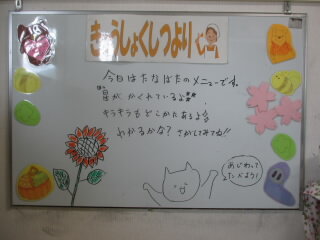 きゅうしょくしつより
今日はたなばたのメニューです。
星がかくれているよ
キラキラもどこかにあるよ
わかるかな？さがしてみてね!!
あじわって
たべよう!